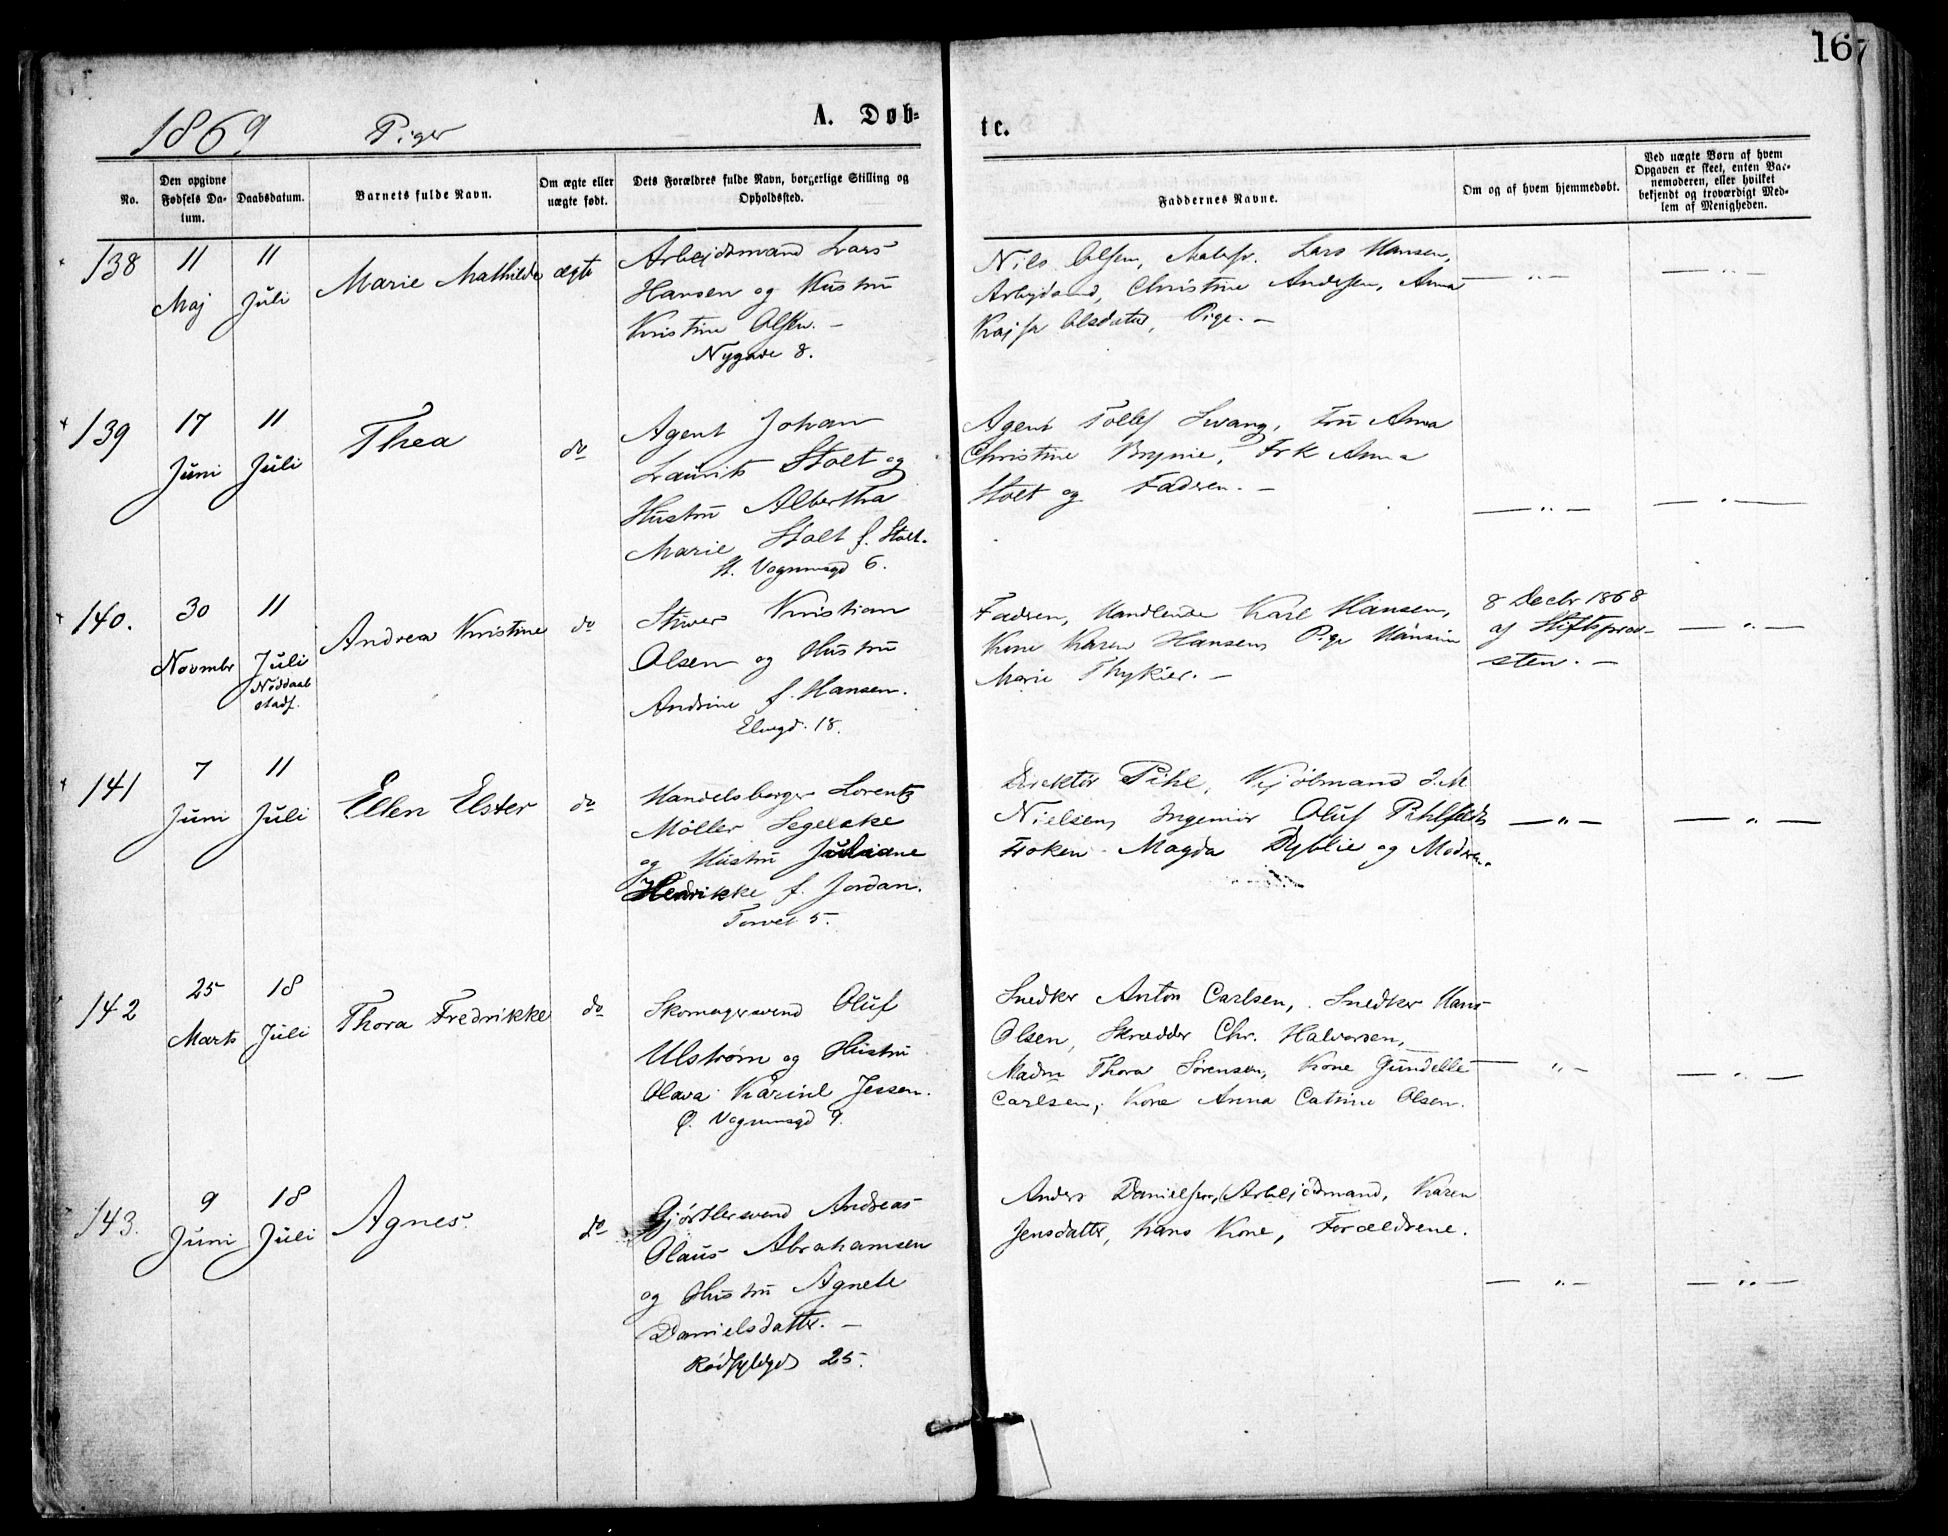 167
1869 Piger A. Døb- te.
No.
Den opgivne Fødsels Da-tum.
Daabsdatum.
Barnets fulde Navn.
Om ægte eller uægte født.
Dets Forældres fulde Navn, borgerlige Stilling og Opholdssted.
Faddernes Navne.
Om og af hvem hjemmedøbt.
Ved uægte Børn af hvem
Opgaven er skeet, enten Bar-
nemoderen, eller hvilket
bekjendt og troværdigt Med-
lem af Menigheden.
138
11
Maj
11
Juli
Marie Mathilde
ægte
Arbejdsmand Lars
Hansen og Hustru
Kristine Olsen. —
Nygade 8.
Nils Olsen, Lars Hansen,
Christine Andersen, Anna
Kajsa Olsdatter, Pige. —
— „ —
— „ —
139
17
Juni
11
Juli
Thea
do
Agent Johan
Laurits Stolt og
Hustru Albertha
Marie Stolt f. Stolt.
St. Vognmsgd 6.
Agent Tollef Svang, Fru Anna
Christine Brynie, Frk Anna
Stolt og Fadren. —
— „ —
— „ —
140.
30
Novmbr
11
Juli
Nøddaab
stadf.
Andrea Kristine
do
Kristian
Olsen og Hustru
Andrine f. Hansen.
Elvegd. 18.
Fadren, Handlende Karl Hansen,
Kone Karen Hansen, Pige
Marie Thykier. —
8 Decbr 1868
af Stiftsprov-
sten. —
— „ —
141
7
Juni
11
Juli
Ellen Elster
do
Handelsborger Lorentz
Møller Segelcke
og Hustru Juliane
Hedrikke f. Jordan.
Torvet 5.
Direktør Pihl, Kjøbmand J. M
Nielsen, Ingeniør Oluf
Frøken Magda Dyblie og Modren.
— „ —
— „ —
142
25
Marts
18
Juli
Thora Fredrikke
do
Skomagersvend Oluf
Ulstrøm og Hustru
Olava Karine Jessen.
Ø. Vognmsgd 9.
Snedker Anton Carlsen, Snedker Hans
Olsen, Skrædder Chr. Halvorsen,
Madm Thora Sørensen, Kone Gundelle
Carlsen, Kone Anna Catrine Olsen.
— „ —
— „ —
143.
9
Juni
18
Juli
Agnes.
do
Gjørtlersvend Andreas
Olaus Abrahamsen
og Hustru Agnete
Danielsdatter. —
Rødfyldgd 25.
Anders Danielsen, Arbejdsmand, Karen
Jensdatter, hans Kone, Forældrene.
— „ —
— „ —